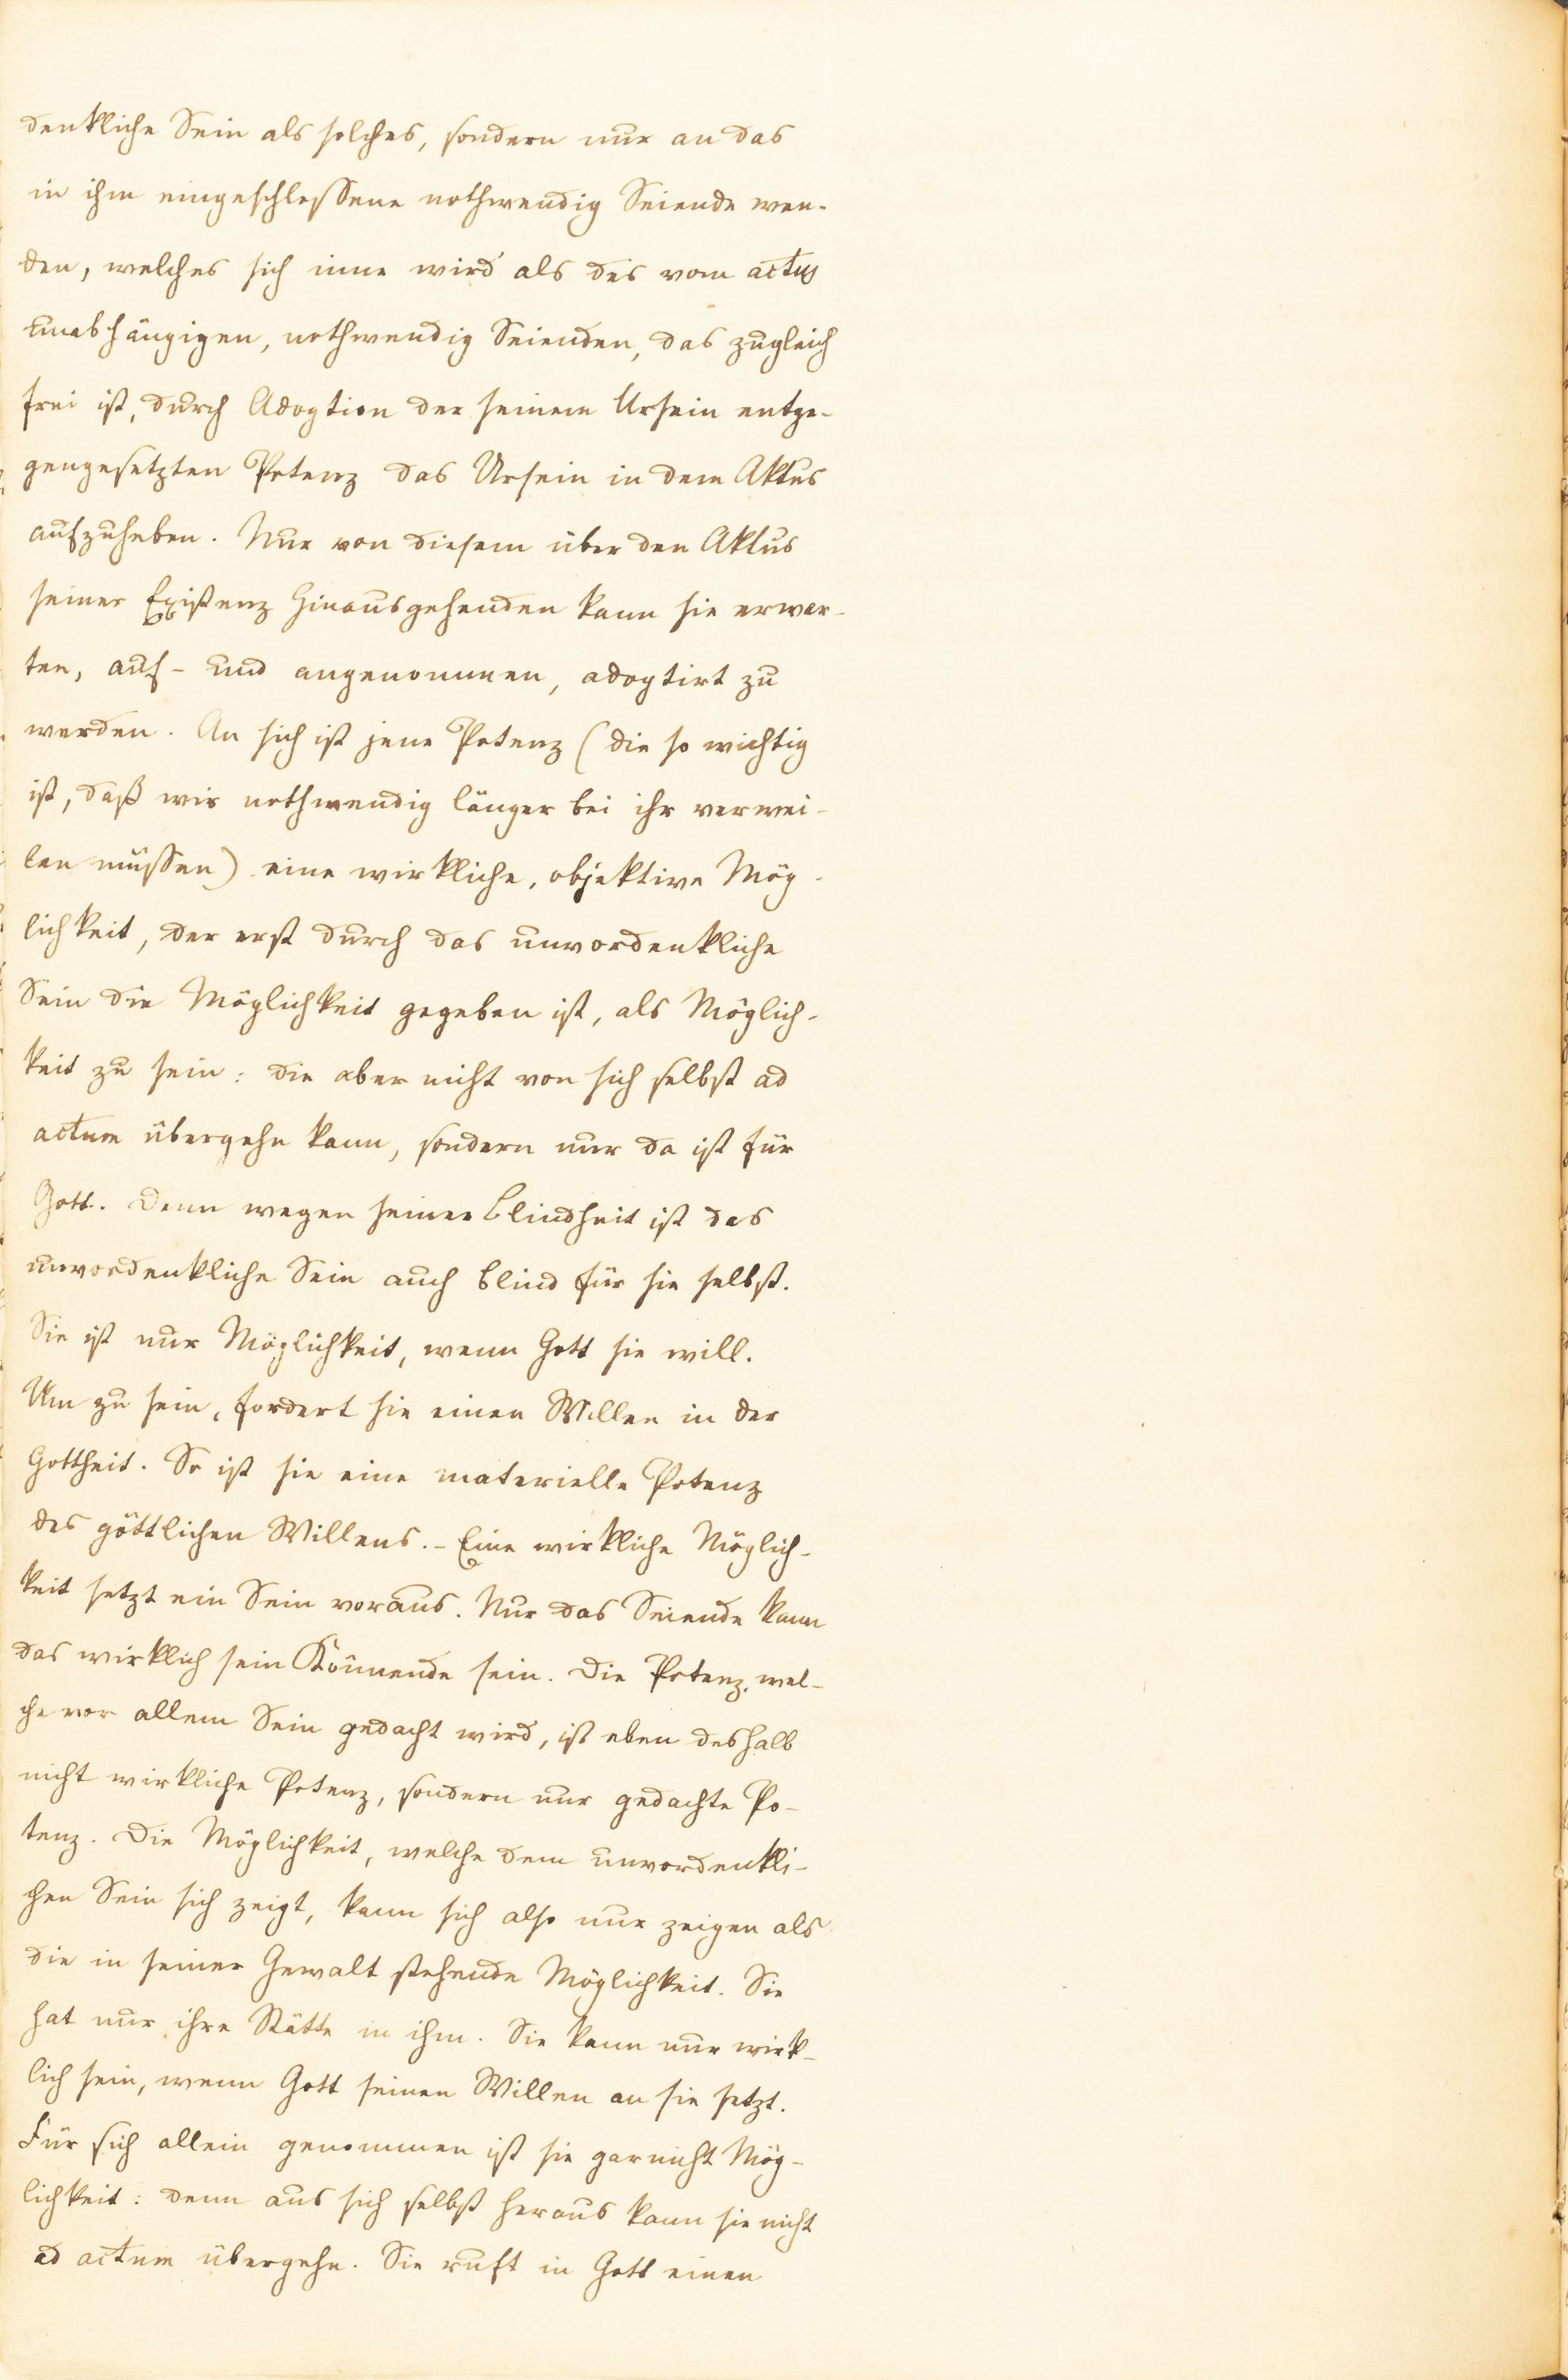 denkliche Sein als solches, sondern nur an das
in ihm eingeschlossene nothwendig Seiende wen-
den, welches sich inne wird als des vom actus
unabhängigen, nothwendig Seienden, das zugleich
frei ist, durch Adoption der seinem Ursein entge-
gengesetzten Potenz das Ursein in dem Aktus
aufzuheben. Nur von diesem über den Aktus
seiner Existenz Hinausgehenden kann sie erwar-
ten, auf- und angenommen, adoptirt zu
werden. An sich ist jene Potenz (die so wichtig
ist, daß wir nothwendig länger bei ihr verwei-
len müssen) eine wirkliche, objektive Mög-
lichkeit, der erst durch das unvordenkliche
Sein die Möglichkeit gegeben ist, als Möglich-
keit zu sein: die aber nicht von sich selbst ad
actum übergehn kann, sondern nur da ist für
Gott. Denn wegen seiner Blindheit ist das
unvordenkliche Sein auch blind für sie selbst.
Sie ist nur Möglichkeit, wenn Gott sie will.
Um zu sein, fordert sie einen Willen in der
Gottheit. So ist sie eine materielle Potenz
des göttlichen Willens. - Eine wirkliche Möglich-
keit setzt ein Sein voraus. Nur das Seiende kann
das wirklich sein Könnende sein. Die Potenz, wel-
che vor allem Sein gedacht wird, ist eben deshalb
nicht wirkliche Potenz, sondern nur gedachte Po-
tenz. Die Möglichkeit, welche dem unvordenkli-
chen Sein sich zeigt, kann sich also nur zeigen als
die in seiner Gewalt stehende Möglichkeit. Sie
hat nur ihre Stätte in ihm. Sie kann nur wirk-
lich sein, wenn Gott seinen Willen an sie setzt.
Für sich allein genommen ist sie gar nicht Mög-
lichkeit: denn aus sich selbst heraus kann sie nicht
ad actum übergehn. Sie ruft in Gott einen